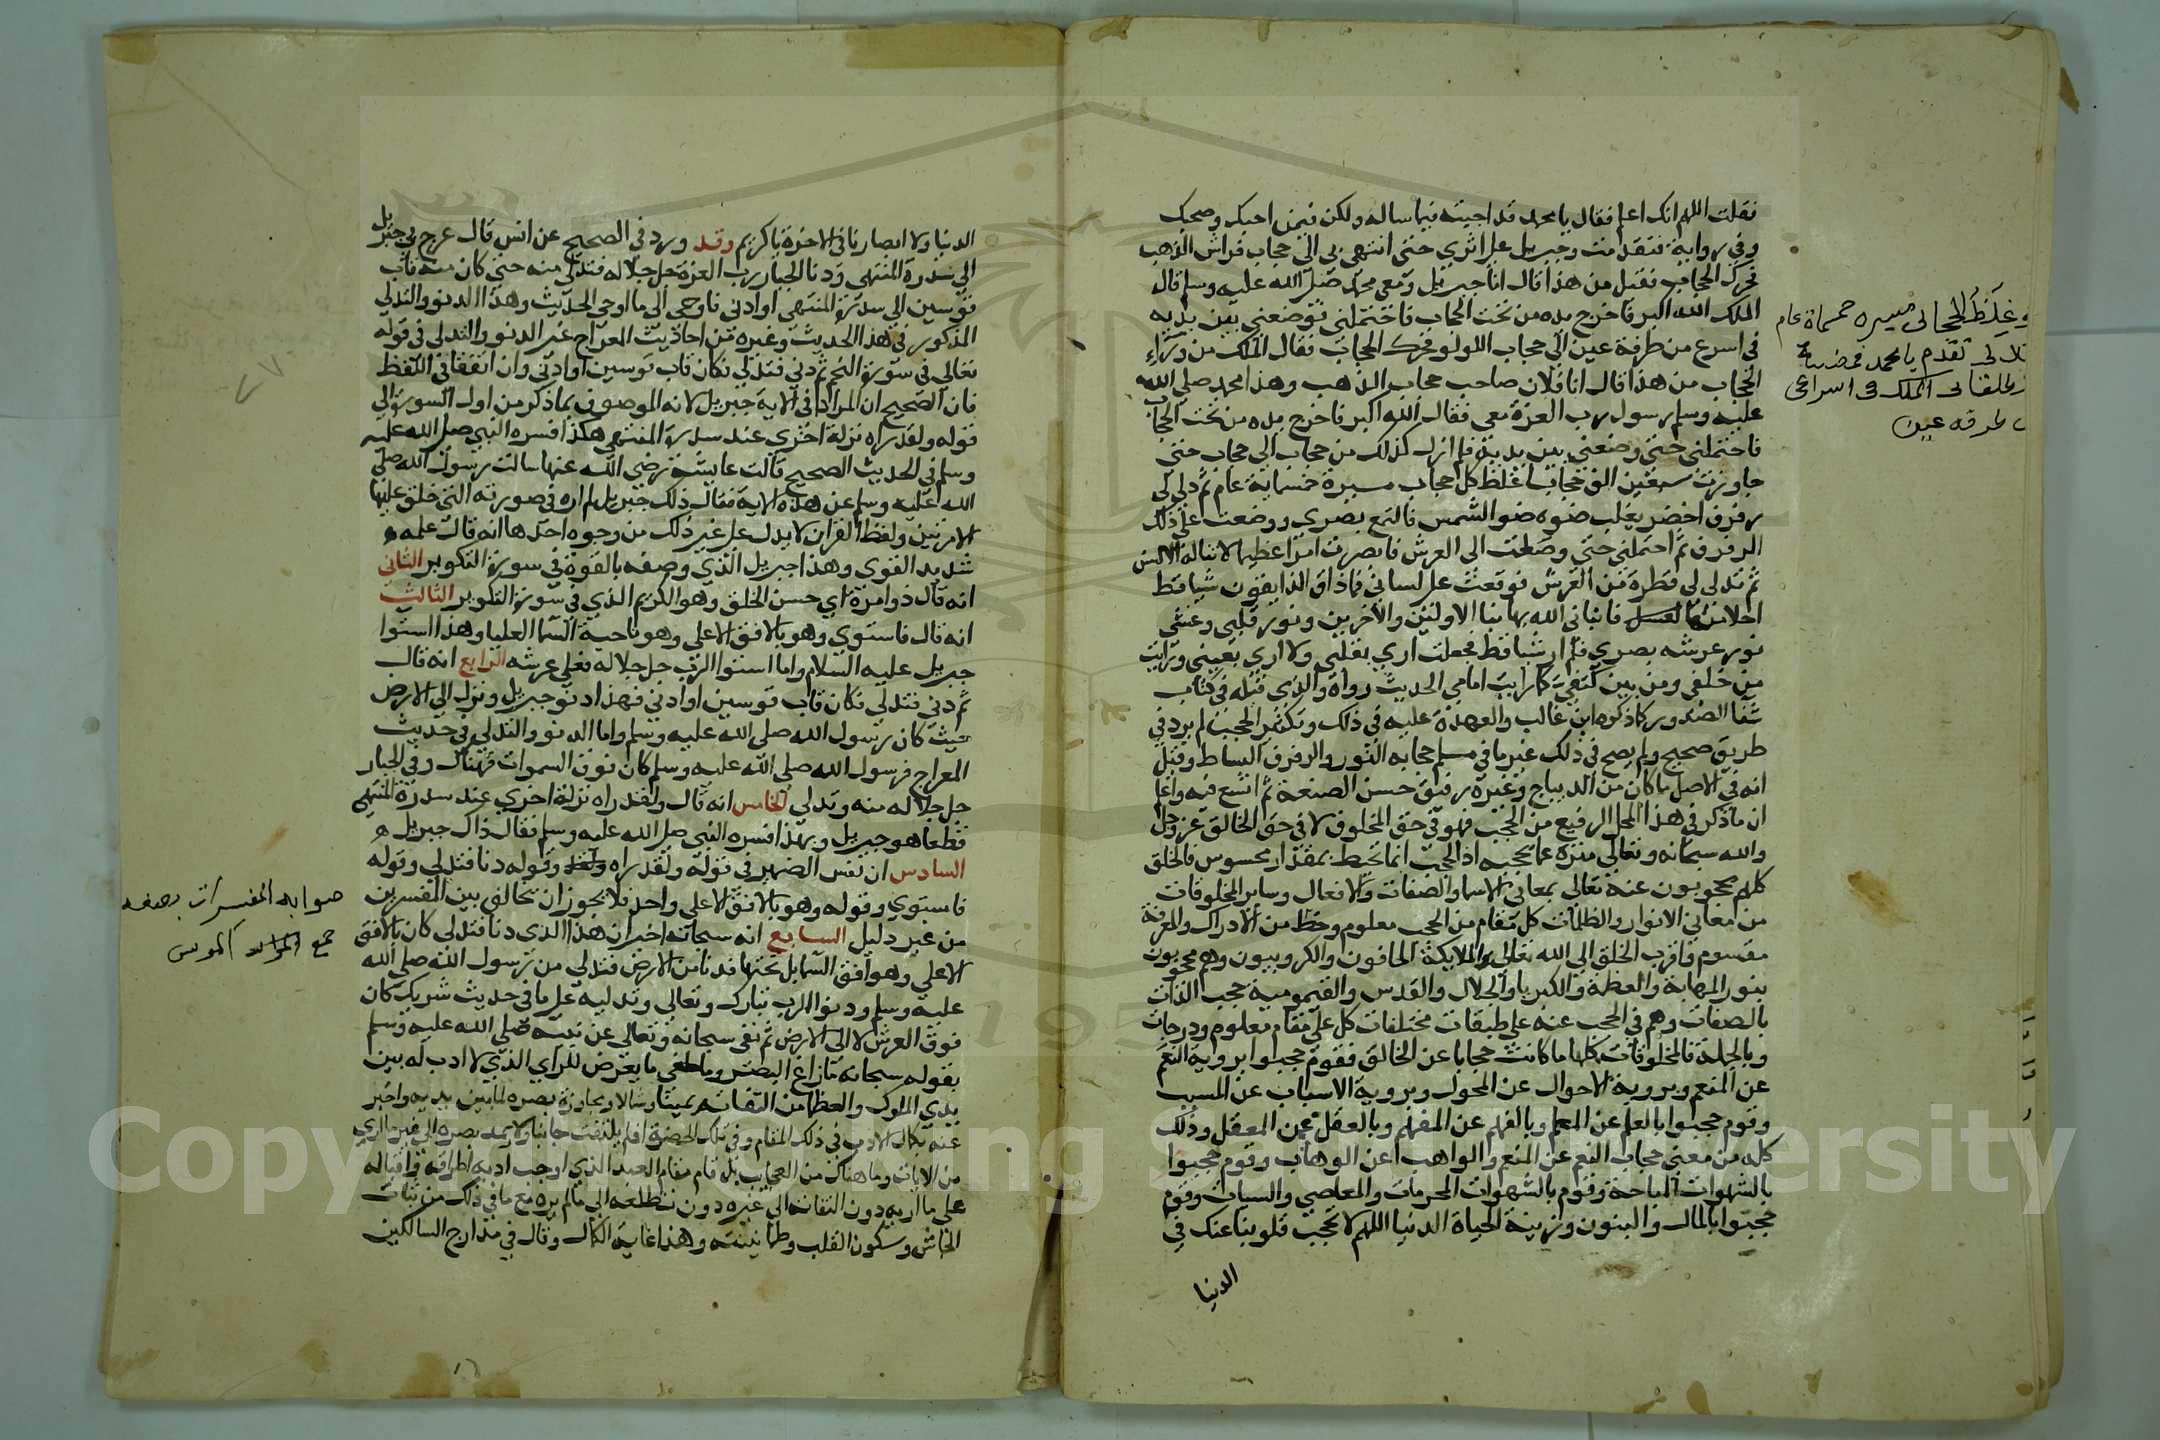 فقلت اللهم انك اعلم فقال يا محمد قد اجبته فيما سال ولكن فيمن احبك وصحبك
وفي رواية فتقدمت وجبريل على اثري حتى انتهى بي الى حجاب فراش الذهب
فحرك الحجاب فقيل من هذا قال انا جبريل ومعي محمد صلى الله عليه وسلم قال
الملك الله اكبر فاخرج يده من تحت الحجاب فاحتملني فوضعني بين يديه
في اسرع من طرفة عين الى حجاب اللولو فحرك الحجاب فقال الملك من وراء
الحجاب من هذا قال انا فلان صاحب حجاب الذهب وهذا محمد صلى الله
عليه وسلم رسول رب العزة معي فقال الله اكبر فاخرج يده من تحت الحجاب
فاحتملني حتى وضعني بين يديه فلم ازل كذلك من حجاب الى حجاب حتى
جاوزت سبعين الف حجاب غلظ كل حجاب مسيرة خمسماية عام ثم دلي لي
رفرف اخضر يغلب ضوه ضو الشمس فالتمع بصري ووضعت على ذلك
الرفرف ثم احتملني حتى وصلت الى العرش فابصرت امرا عظيما لا تناله الالسن
ثم تدلى لي قطرة من العرش فوقعت على لساني فما ذاق الذايقون شيا قط
احلا منها فانباني الله بها نبا الاولين والاخرين ونور قلبي وغشي
نور عرشه بصري فلم ار شيا قط فجعلت اري بقلبي ولا اري بعيني ورايت
من خلفي ومن بين كتفي كما رايت امامي الحديث رواه والذي قبله في كتاب
شفا الصدور كما ذكره ابن غالب والعهدة عليه في ذلك وتكثير الحجب لم يرد في
طريق صحيح ولم يصح في ذلك غير ما في مسلم حجابه النور والرفرف البساط وقيل
انه في الاصل ما كان من الديباج وغيره رقيق حسن الصنعة ثم اتسع فيه واعلم
ان ما ذكر في هذا المحل الرفيع من الحجب فهو في حق المخلوق لا في حق الخالق عز وجل
والله سبحانه وتعالى منزه عما يحجبه اذ الحجب انما تحيط بمقدار محسوس فالخلق
كلهم محجوبون عنه تعالى بمعاني الاسما والصفات والافعال وساير المخلوقات
من معاني الانوار والظلمات كل مقام من الحجب معلوم وحظ من الادراك والمعرفة
مقسوم فاقرب الخلق الى الله تعالى الملايكة الحافون والكروبيون وهم محجوبون
بنور المهابة والعظمة والكبريا والجلال والقدس والقيومية حجب الذات
بالصفات وهم في الحجب عنه على طبقات مختلفات كل على مقام معلوم ودرجات
وبالجملة فالمخلوقات كلها ما كانت حجابا عن الخالق فقوم حجبوا بروية النعم
عن المنعم وبروية الاحوال عن المحول وبروية الاسباب عن المسبب
وقوم حجبوا بالعلم عن المعلم وبالفهم عن المفهم وبالعقل عن المعقل وذلك
كله من معنى حجاب النعم عن المنعم والواهب عن الوهاب وقوم حجبوا
بالشهوات المباحة وقوم بالشهوات المحرمات والمعاصي والسيات وقوم
حجبوا بالمال والبنون وزينة الحياة الدنيا اللهم لا تحجب قلوبنا عنك في
الدنيا
وغلظ الحجاب مسيره خمسماة عام
قال لي تقدم يا محمد فمضيت
فانطلق بي الملك في اسرع
من طرفه عين
الدنيا ولا ابصارنا في الاخرة يا كريم وقد ورد في الصحيح عن انس قال عرج بي جبريل
الى سدرة المنتهى ودنا الجبار رب العزة جل جلاله فتدلى منه حتى كان منه قاب
قوسين الى سدرة المنتهى او ادنى فاوحى الى ما اوحى الحديث وهذا الدنو والتدلي
المذكور في هذا الحديث وغيره من احاديث المعراج غير الدنو والتدلي في قوله
تعالى في سورة النجم ثم دنى فتدلى فكان قاب قوسين او ادنى وان اتفقا في اللفظ
فان الصحيح ان المراد في الاية جبريل لانه الموصوف بما ذكر من اول السورة الى
قوله ولقد راه نزلة اخرى عند سدرة المنتهى هكذا فسره النبي صلى الله عليه
وسلم في الحديث الصحيح قالت عايشة رضي الله عنها سالت رسول الله صلى
الله عليه وسلم عن هذه الاية فقال ذلك جبريل لم اره في صورته التي خلق عليها
الا مرتين ولفظ القران لا يدل على غير ذلك من وجوه احدها انه قال علمه
شديد القوى وهذا جبريل الذي وصفه بالقوة في سورة التكوير الثاني
انه قال ذو مرة اي حسن الخلق وهو الكريم الذي في سورة التكوير الثالث
انه قال فاستوى وهو بالافق الاعلى وهو ناحية السما العليا وهذا استوا
جبريل عليه السلام واما استوا الرب جل جلاله فعلى عرشه الرابع انه قال
ثم دنى فتدلى فكان قاب قوسين او ادنى فهذا دنو جبريل ونزل الى الارض
حيث كان رسول الله صلى الله عليه وسلم واما الدنو والتدلي في حديث
المعراج فرسول الله صلى الله عليه وسلم كان فوق السموات فهناك دنى الجبار
جل جلاله منه وتدلى الخامس انه قال ولقد راه نزلة اخرى عند سدرة المنتهى
قطعا هو جبريل وبهذا فسره النبي صلى الله عليه وسلم فقال ذاك جبريل
السادس ان نفس الضمير في قوله ولقد راه وقوله دنا فتدلى وقوله
فاستوى وقوله وهو بالافق الاعلى واحد فلا يجوز ان تخالف بين المفسرين
من غير دليل السابع انه سبحانه اخبر ان هذا الذي دنا فتدلى كان بالافق
الاعلى وهو افق السما بل تحتها فدنا من الارض فتدلى من رسول الله صلى الله
عليه وسلم ودنو الرب تبارك وتعالى وتدليه على ما في حديث شريك كان
فوق العرش لا الى الارض ثم نفى سبحانه وتعالى عن نبيه صلى الله عليه وسلم
بقوله سبحانه ما زاغ البصر وما طغى ما يعرض للراي الذي لا ادب له بين
يدي الملوك والعظما من التفاته يمينا وشمالا ومجاوزة بصره لما بين يديه واخبر
عنه بكمال الادب في ذلك المقام وفي تلك الحضرة اذ لم يلتفت جانبا ولم يمد بصره الى غير ما اري
من الايات وما هناك من العجايب بل قام مقام العبد الذي اوجب ادبه اطراقه واقباله
على ما اريه دون التفاته الى غيره ودون تطلعه الى ما لم يره مع ما في ذلك من ثبات
الجاش وسكون القلب وطمانينته وهذا غاية الكمال وقال في مدارج السالكين
صوابه المفسرات بصيغه
جمع المونث
Copyright © King Saud University
195